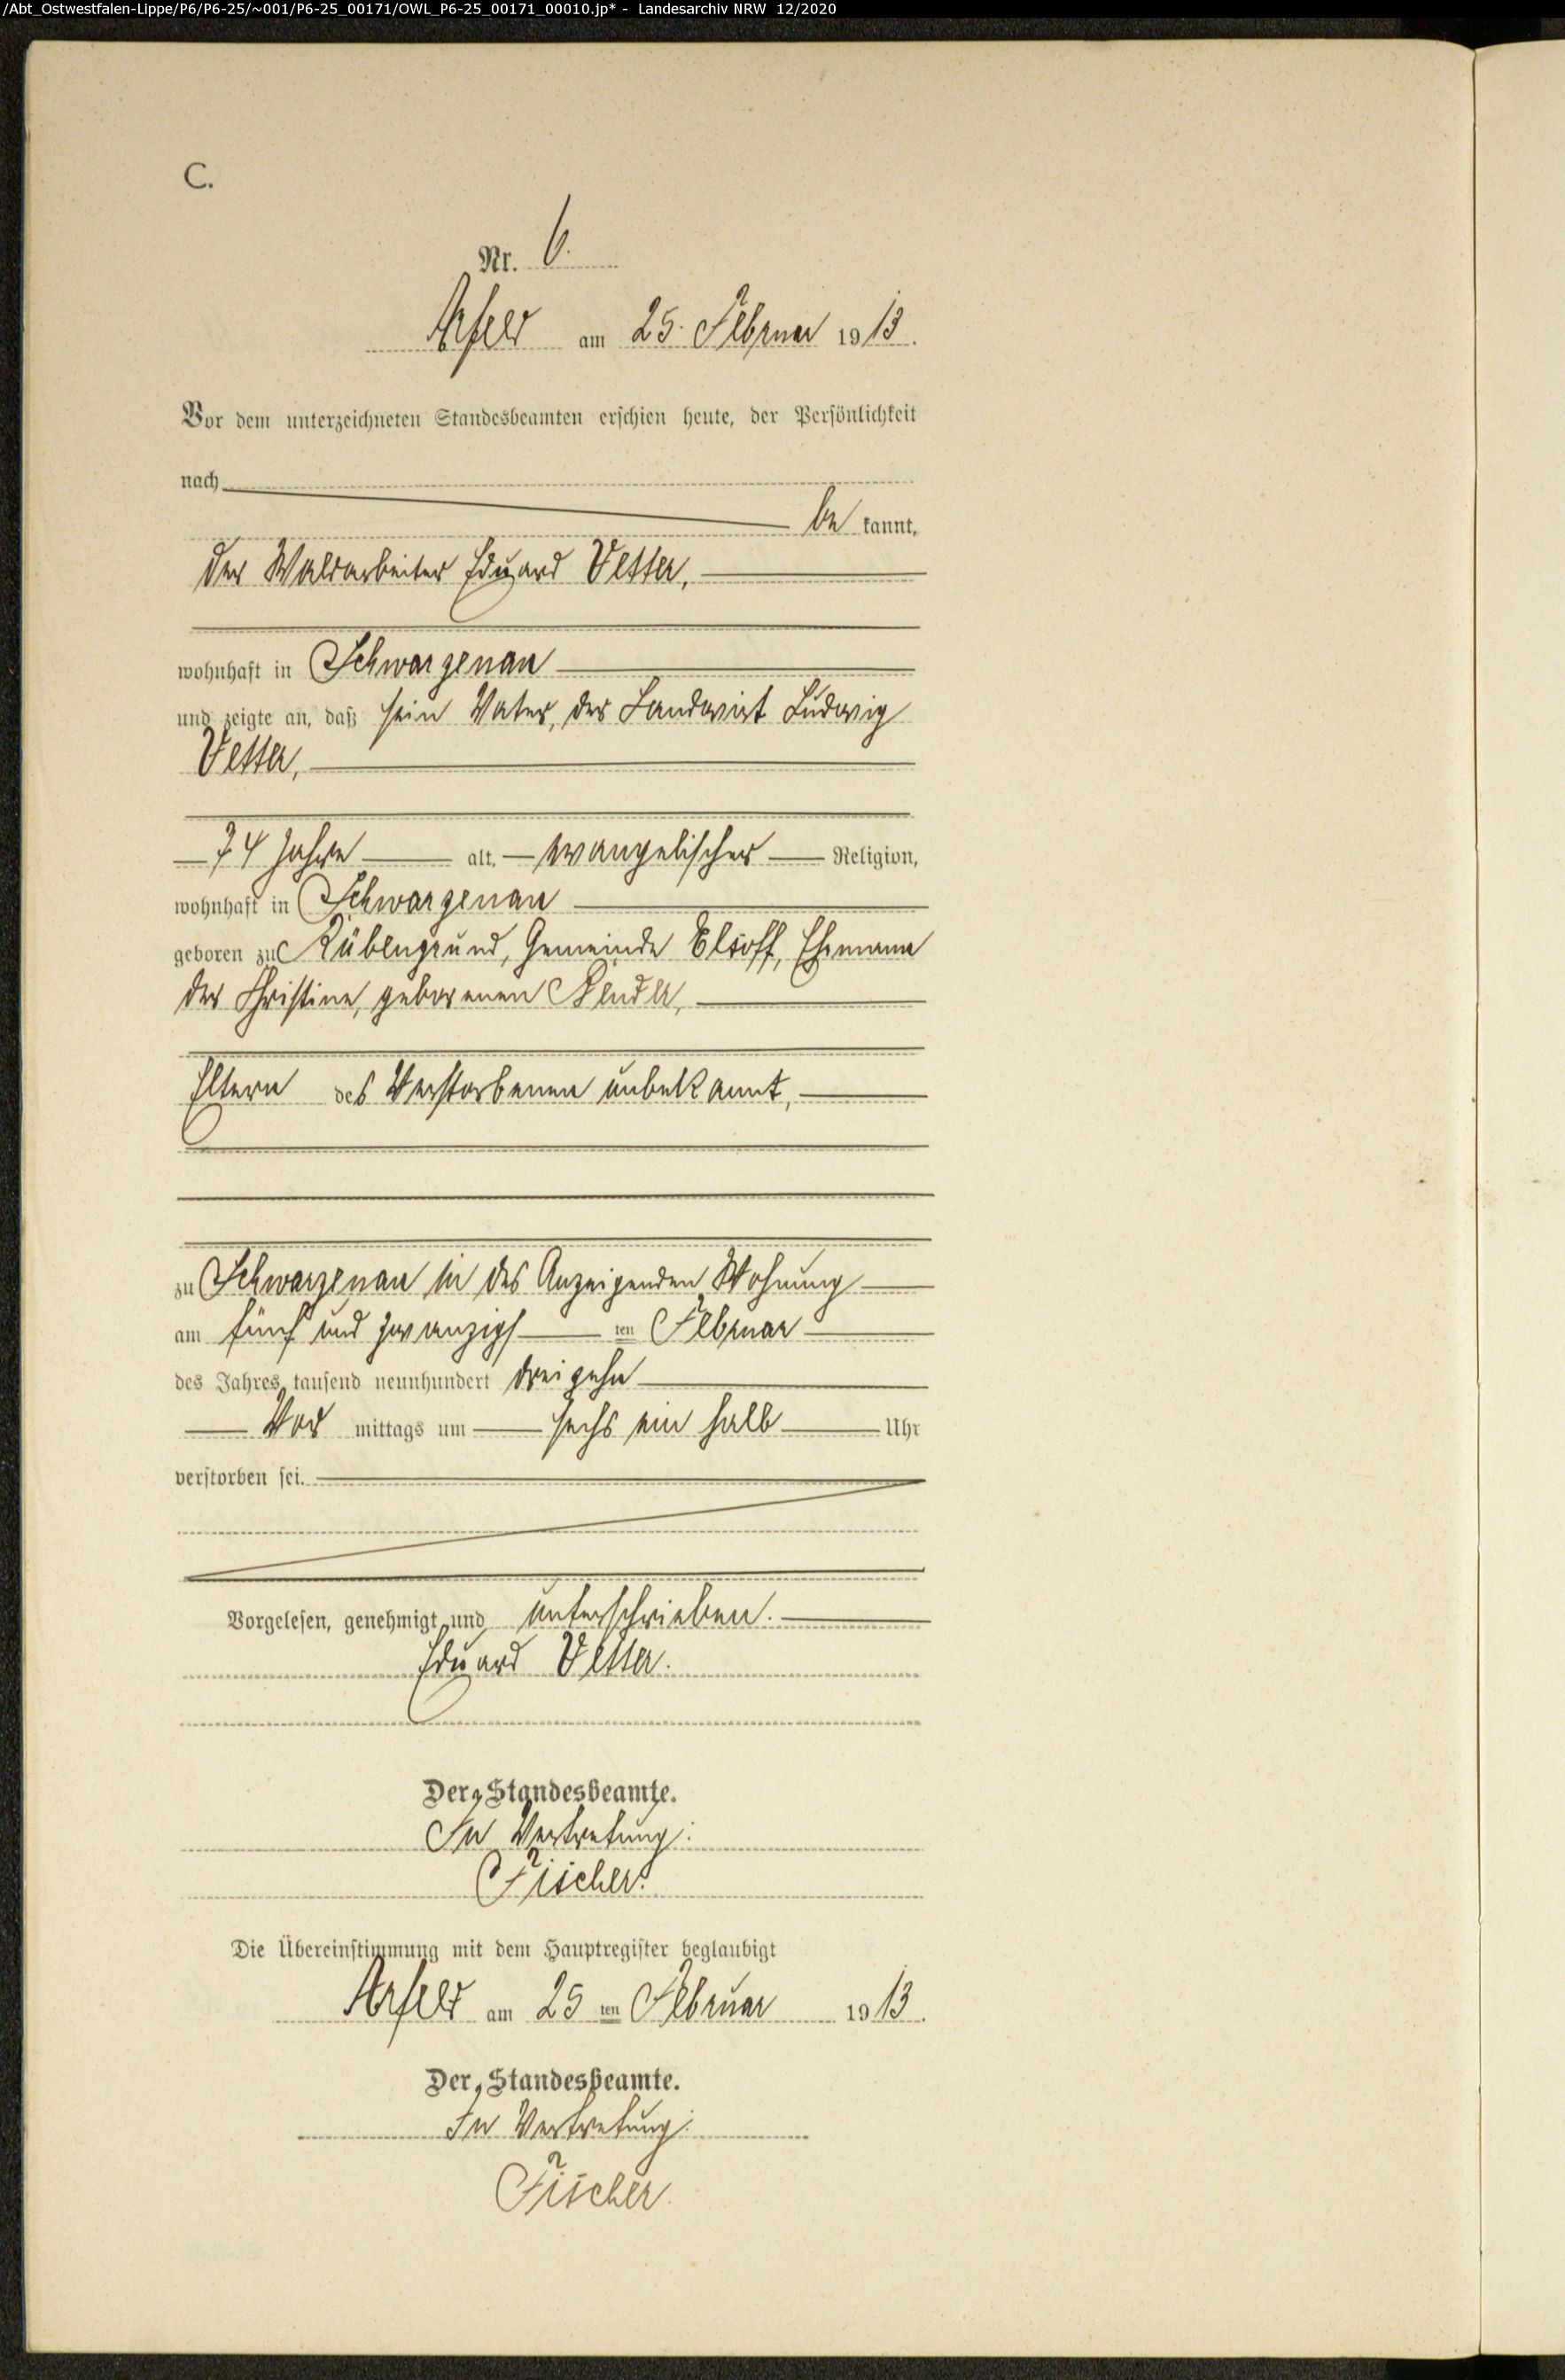 /Abt_Ostwestfalen-Lippe/P6/P6-25/~001/P6-25_00171/OWL_P6-25_00171_00010.jp* - Landesarchiv NRW 12/2020
C.
Nr. 6.
Arfeld am 25. Februar 1913.
Vor dem unterzeichneten Standesbeamten erschien heute, der Persönlichkeit
nach
be kannt,
der Waldarbeiter Eduard Vetter,
wohnhaft in Schwarzenau
und zeigte an, daß sein Vater, der Landwirt Ludwig
Vetter,
74 Jahre alt, evangelischer Religion,
wohnhaft in Schwarzenau
geboren zu Rübengrund, Gemeinde Elsoff, Ehemann
der Christine, geborenen
Eltern des Verstorbenen unbekannt,
zu Schwarzenau in des Anzeigenden Wohnung
am fünf und zwanzigsten Februar
des Jahres tausend neunhundert dreizehn
Vor mittags um sechs ein halb Uhr
verstorben sei.
Vorgelesen, genehmigt und unterschrieben.
Eduard Vetter.
Der Standesbeamte.
In Vertretung:
Fischer.
Die Übereinstimmung mit dem Hauptregister beglaubigt
Arfeld am 25 ten Februar 1913.
Der Standesbeamte.
In Vertretung:
Fischer.